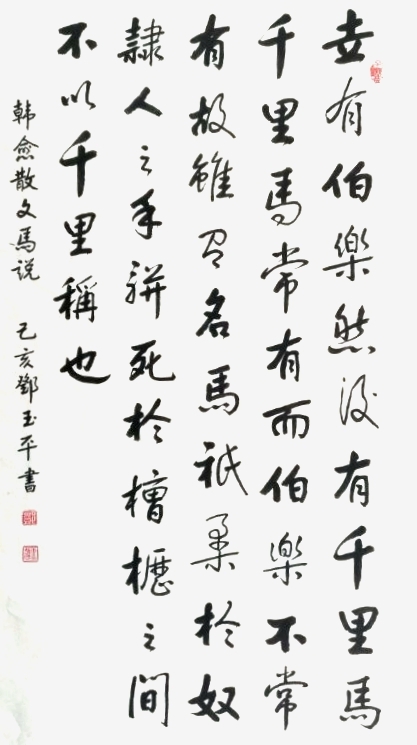 世有伯樂然後有千里馬
千里馬常有而伯樂不常
有故雖有名馬祇辱於奴
隸人之手駢死於槽櫪之間
不以千里稱也
韓愈散文馬說 己亥鄧玉平書